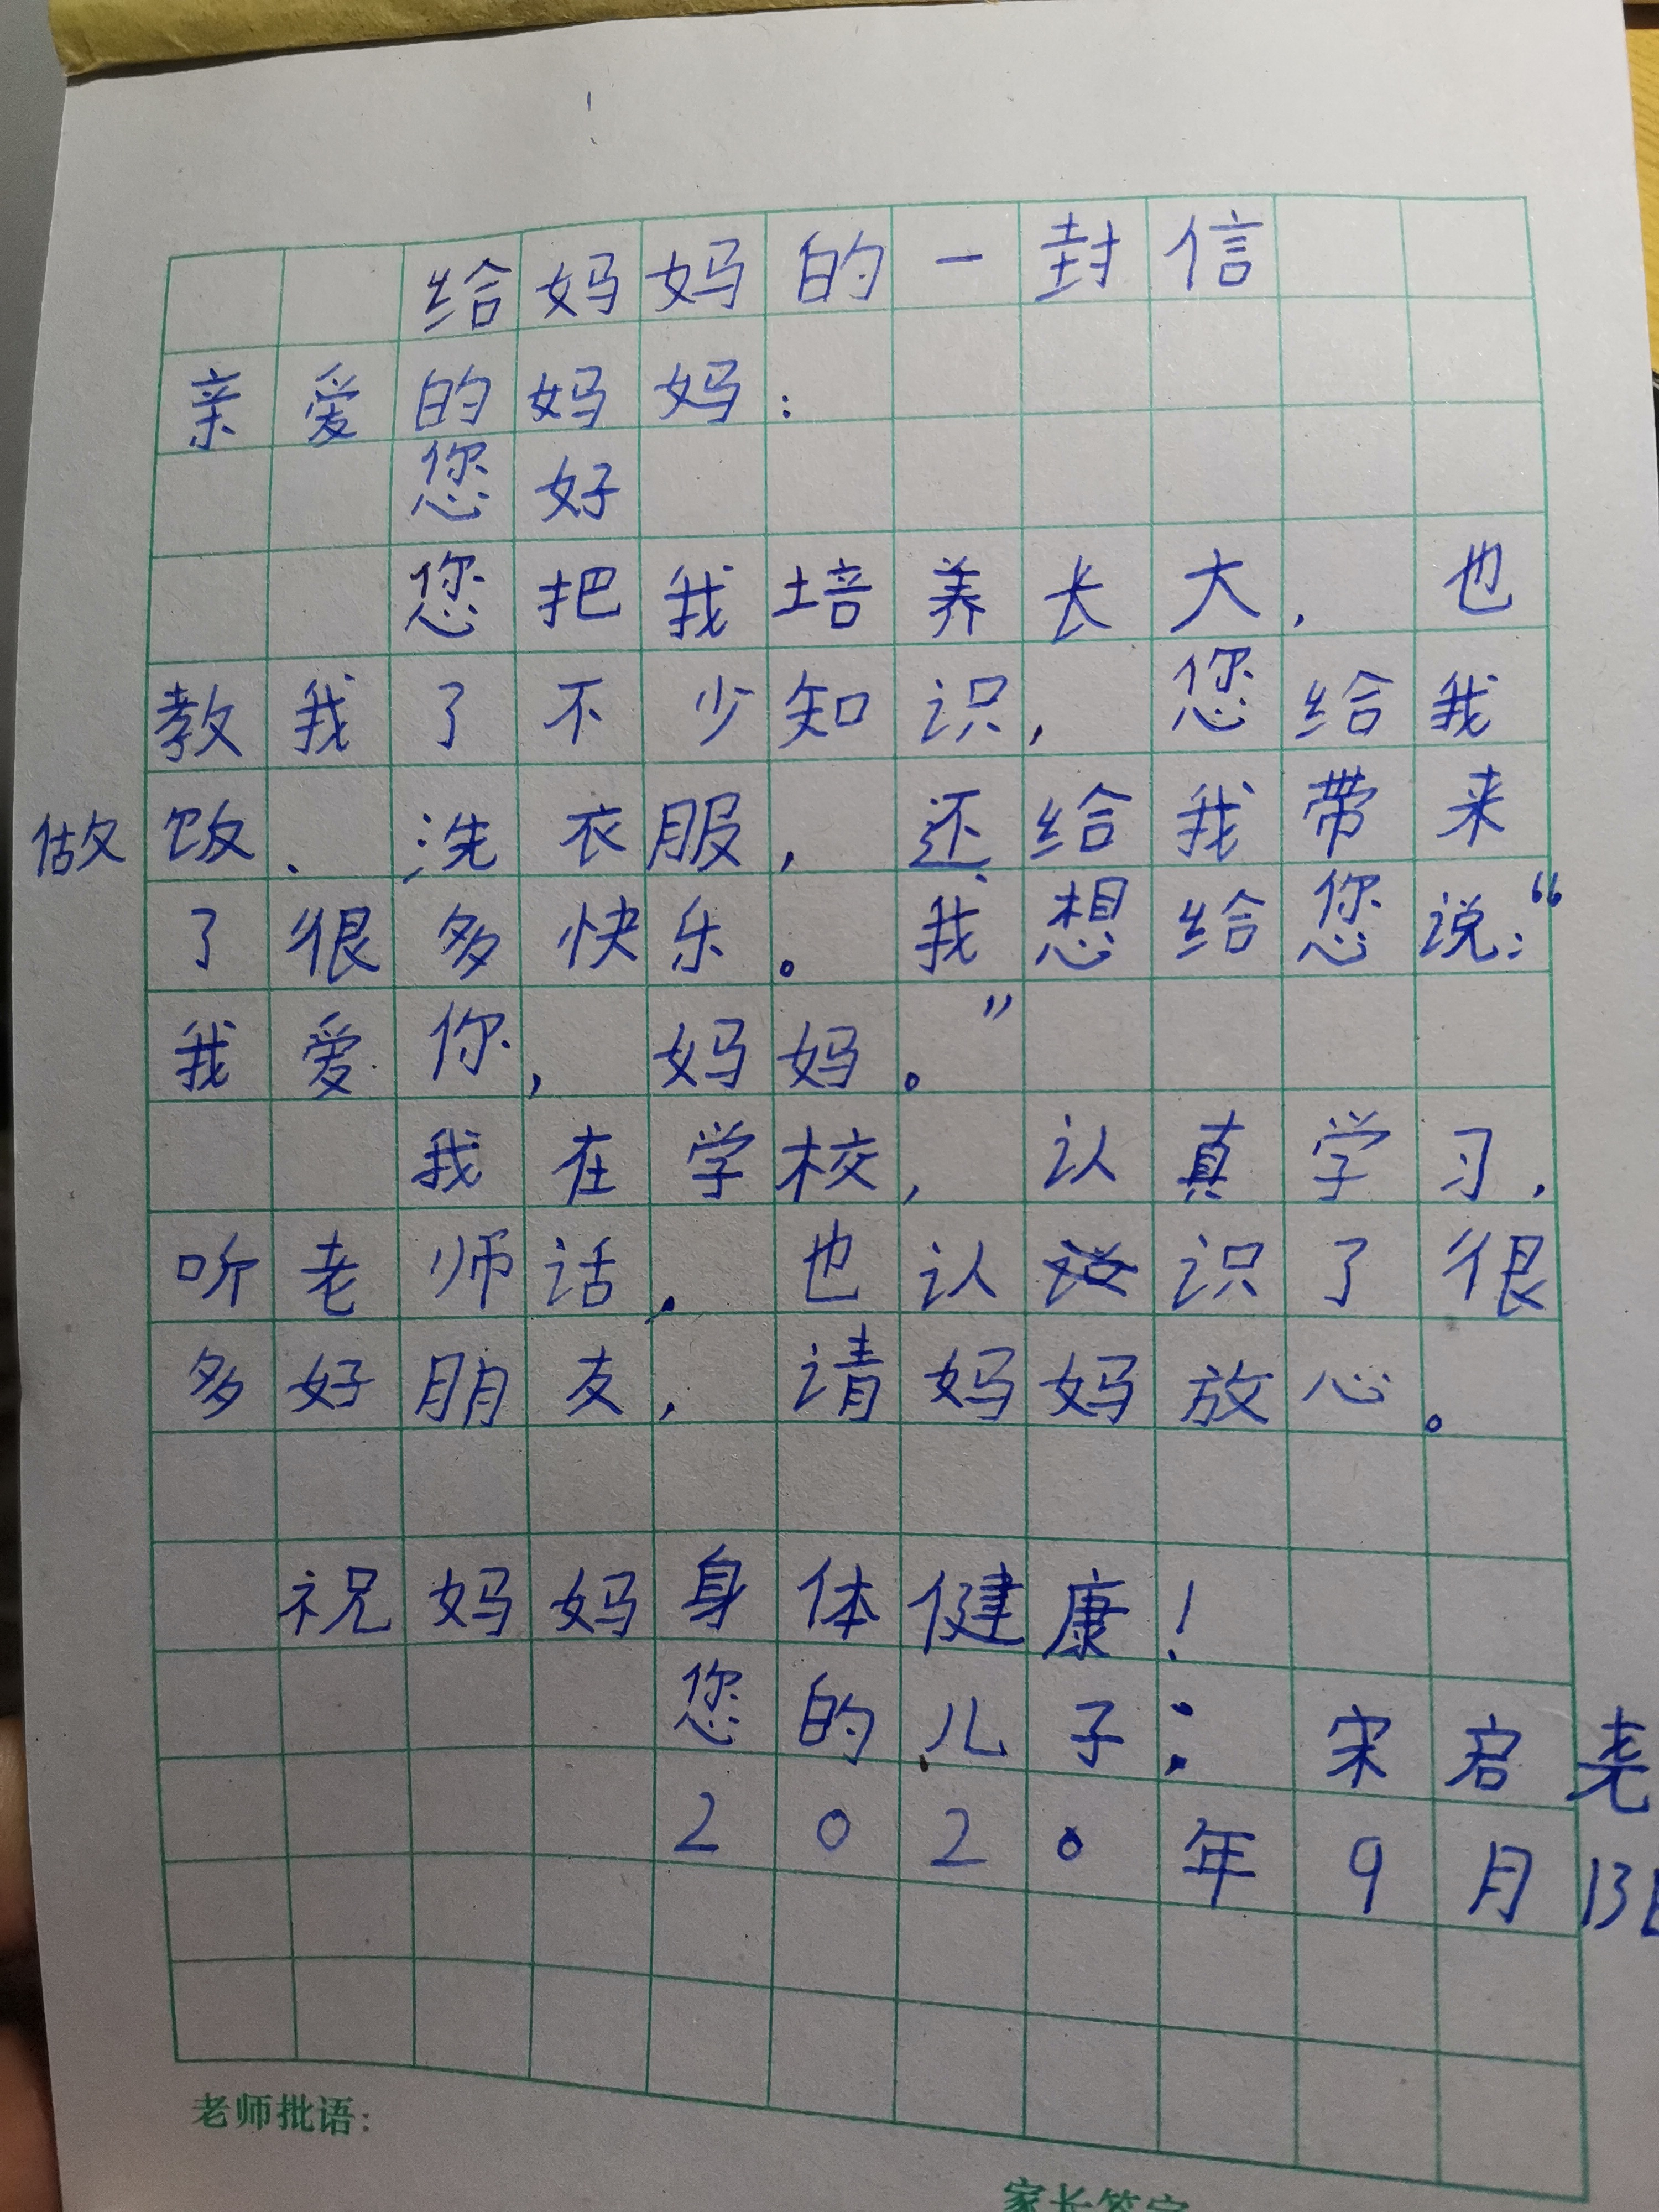 给妈妈的一封信
亲爱的妈妈：
您好
您把我培养长大，也
教我了不少知识，您给我
做饭、洗衣服，还给我带来
了很多快乐。我想给您说：“
我爱你，妈妈。”
我在学校，认真学习，
听老师话，也认识了很
多好朋友，请妈妈放心。
祝妈妈身体健康！
您的儿子：宋启尧
2020年9月13日
老师批语：
家长签字